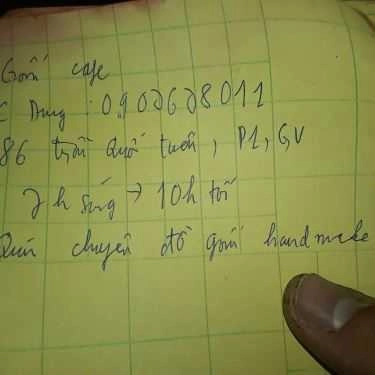 Gốm cafe
C Dung : 0902628011
86 trần Quốc tuấn, P1, GV
7h sáng → 10h tối
Quán chuyên đồ gốm handmake